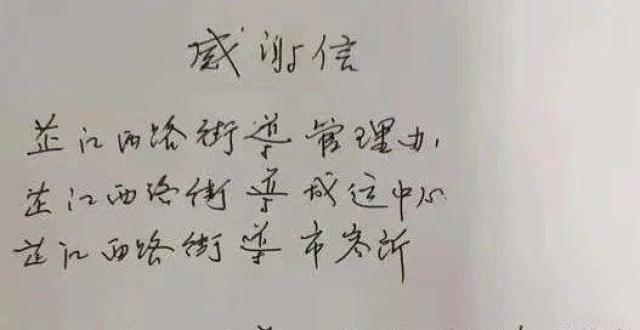 感谢信
芷江西路街道管理办,
芷江西路街道城运中心
芷江西路街道市容所